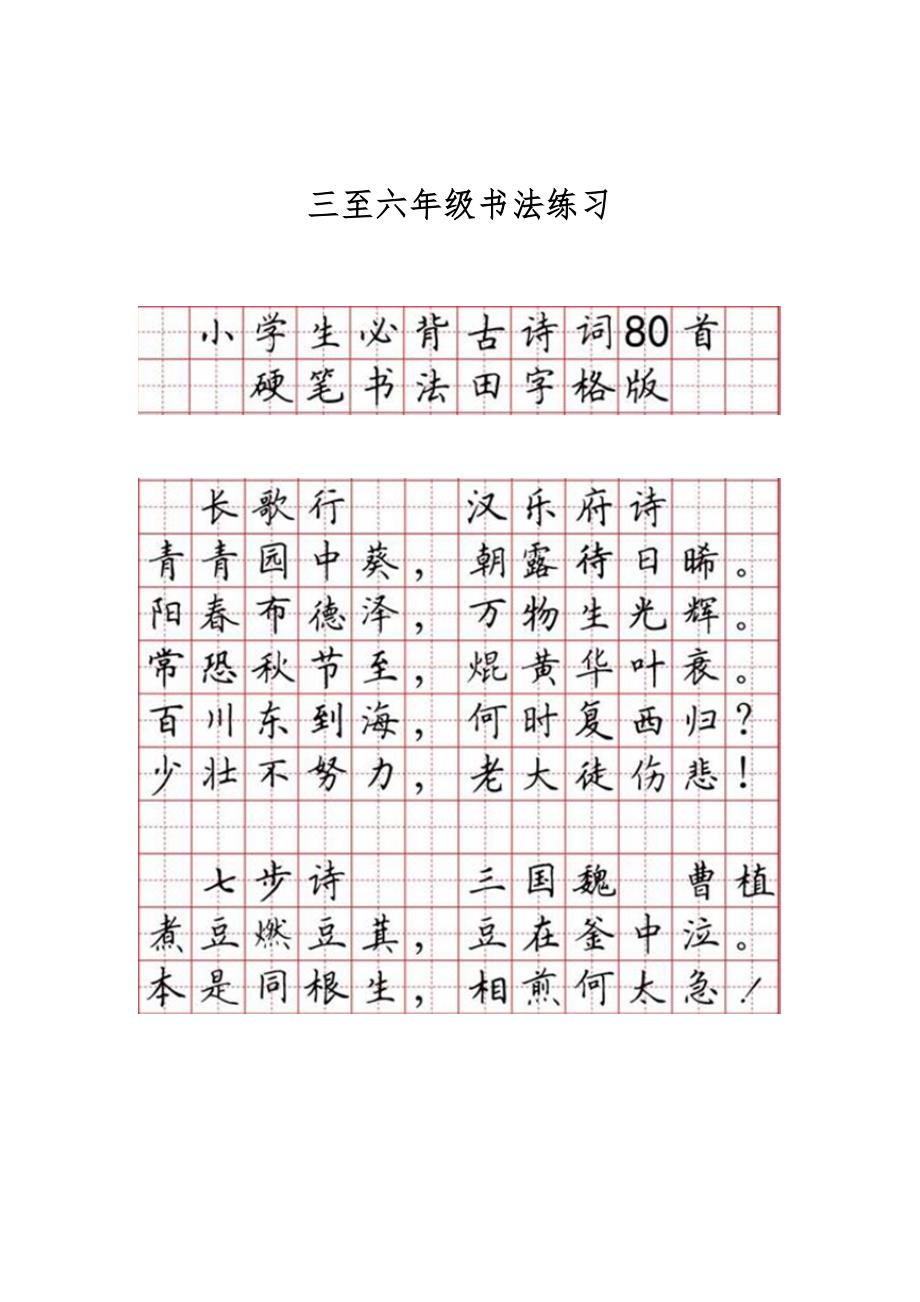 三至六年级书法练习
小学生必背古诗词80首
硬笔书法田字格版
长歌行 汉乐府诗
青青园中葵，朝露待日晞。
阳春布德泽，万物生光辉。
常恐秋节至，焜黄华叶衰。
百川东到海，何时复西归？
少壮不努力，老大徒伤悲！
七步诗 三国魏 曹植
煮豆燃豆萁，豆在釜中泣。
本是同根生，相煎何太急！